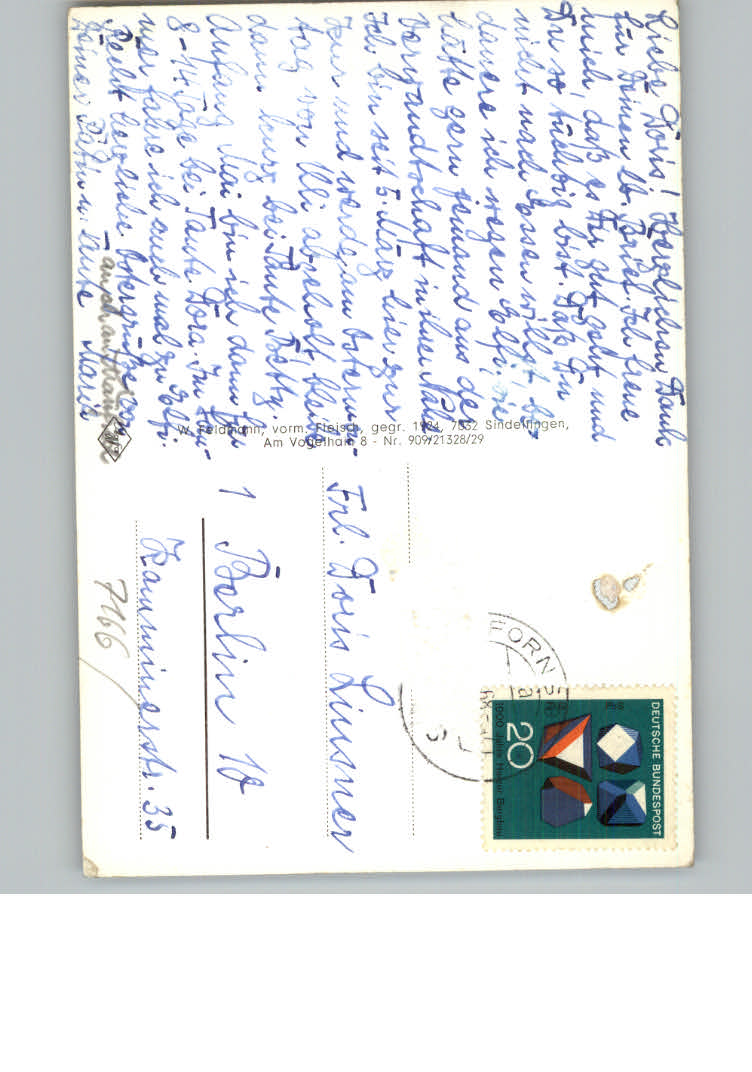 Liebe Doris! Herzlichen Dank
für Deinen lb. Brief. Ich freue
mich, daß es Dir gut geht und
Du so tüchtig bist. Daß Du
nicht nach Essen willst, be-
dauere ich wegen Elfi. Sie
hätte gern jemand aus der
Verwandtschaft in ihrer Nähe
Ich bin seit 5. März hier zur
Kur und werde am Ostermon-
tag von Uli abgeholt, bleibe
dann kurz bei Tante Hetty.
Anfang Mai bin ich dann für
8-14 Tage bei Tante Dora. Im Som-
mer fahre ich auch mal zu Elfi.
Recht herzliche Ostergrüße von
Deiner Patin u. Tante Maria
W. Feldmann, vorm. Fleisch, gegr. 1924, 7032 Sindelfingen,
Am Vogelhain 8 - Nr. 909/21328/29
Frl. Doris Linsner
1 Berlin 10
Kamminerstr. 35
7166
DEUTSCHE BUNDESPOST
20
1000 Jahre Harzer Bergbau